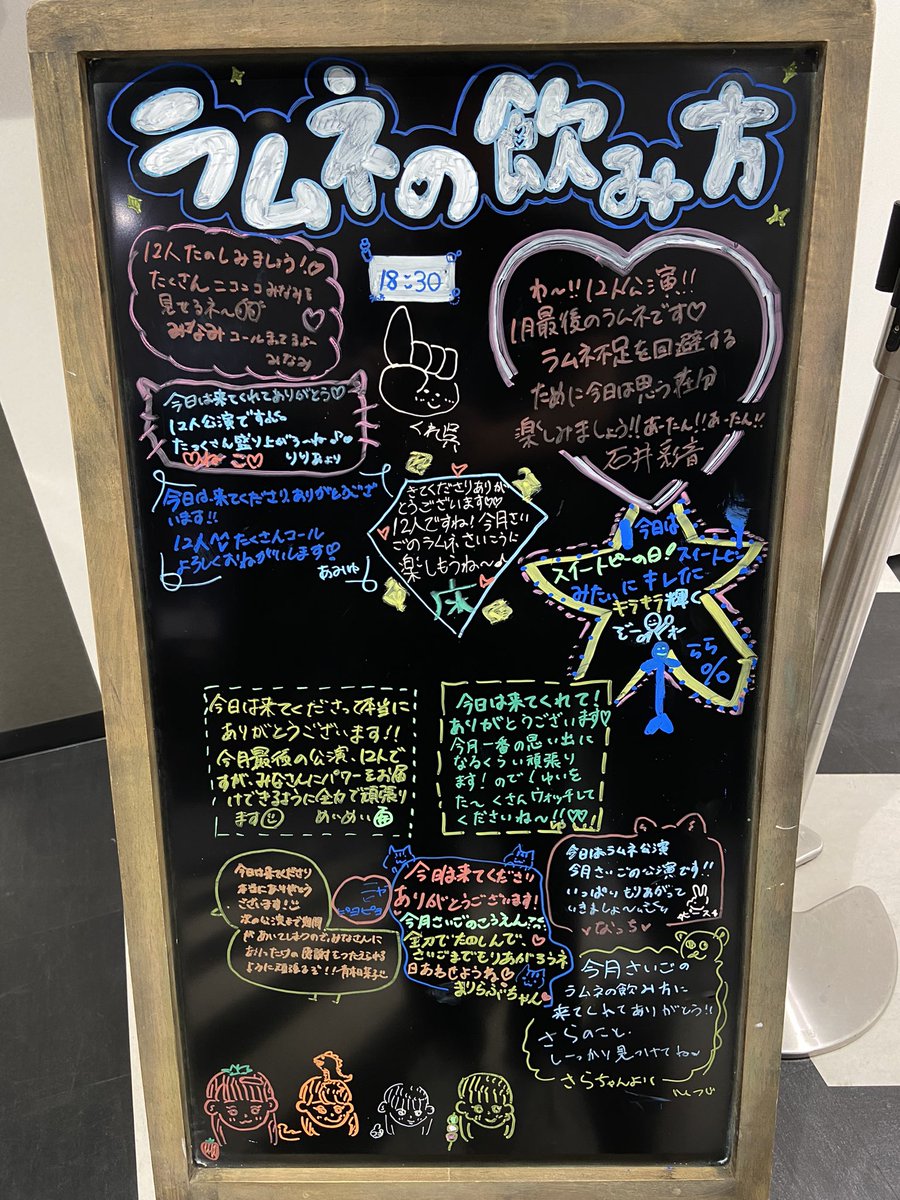 ラムネの飲み方
12人たのしみましょう!♡
たくさんニコニコみなみを
見せるネ〜
みなみコールまってるよー
みなみ
18:30
わ〜!!12人公演!!
1月最後のラムネです♡
ラムネ不足を回避する
ために今日は思う存分
楽しみましょう!!あーたん!!あーたん!!
石井彩音
今日は来てくれてありがとう♡
12人公演ですが
たっくさん盛り上がろーね♪
♡ねこ♡ りりあより
今日は来てくださりありがとうござ
います!!
12人 たくさんコール
よろしくおねがいします♡
あみゆ
きてくださりありが
とうございます♡♡
12人ですね!今月さい
ごのラムネさいこうに
楽しもうね〜♪
今日は
スイートピーの日!スイートピー
みたいにキレイに
キラキラ輝く
らら
今日は来てくださって本当に
ありがとうございます!!
今月最後の公演、12人で
すが、みなさんにパワーをお届
けできるように全力で頑張り
ます めいめい
今日は来てくれて!
ありがとうございます♡
今月一番の思い出に
なるくらい頑張り
ます!のでしゅいを
た〜くさんウォッチして
くださいね〜!!♡♡
今日は来てくださり
本当にありがとう
ございます!
次の公演まで期間
があいてしまうので、みなさんに
今日は来てくださり
ありがとうございます!
今月さいごのこうえん
全力でたのしんで、
さいごまでもりあがろうネ
目あわせようね♡
まりらぶちゃん
今日はラムネ公演
今月さいごの公演です!!
いっぱいもりあがって
いきましょ〜
♡なっち♡
今月さいごの
ラムネの飲み方に
来てくれてありがとう!!
さらのこと
しーっかり見つけてね〜
さらちゃんより